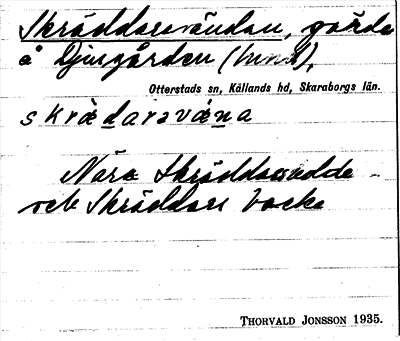 Skräddarevändan, gärde
å Djurgården (hmd),
Otterstads sn, Kållands hd, Skaraborgs län.
skrädareväna
Nära Skräddareudde-
och Skräddare backe
THORVALD JONSSON 1935.